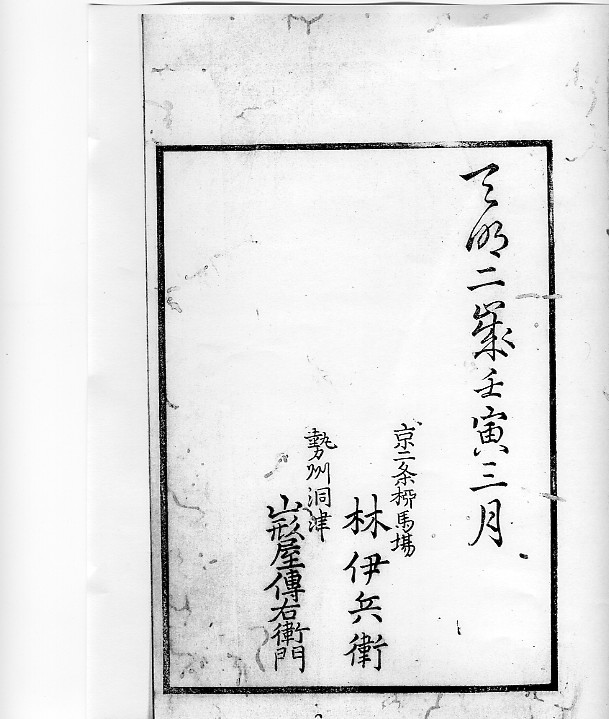 天明二歳壬寅三月
京二条柳馬場
林伊兵衛
勢州洞津
山形屋傳右衛門